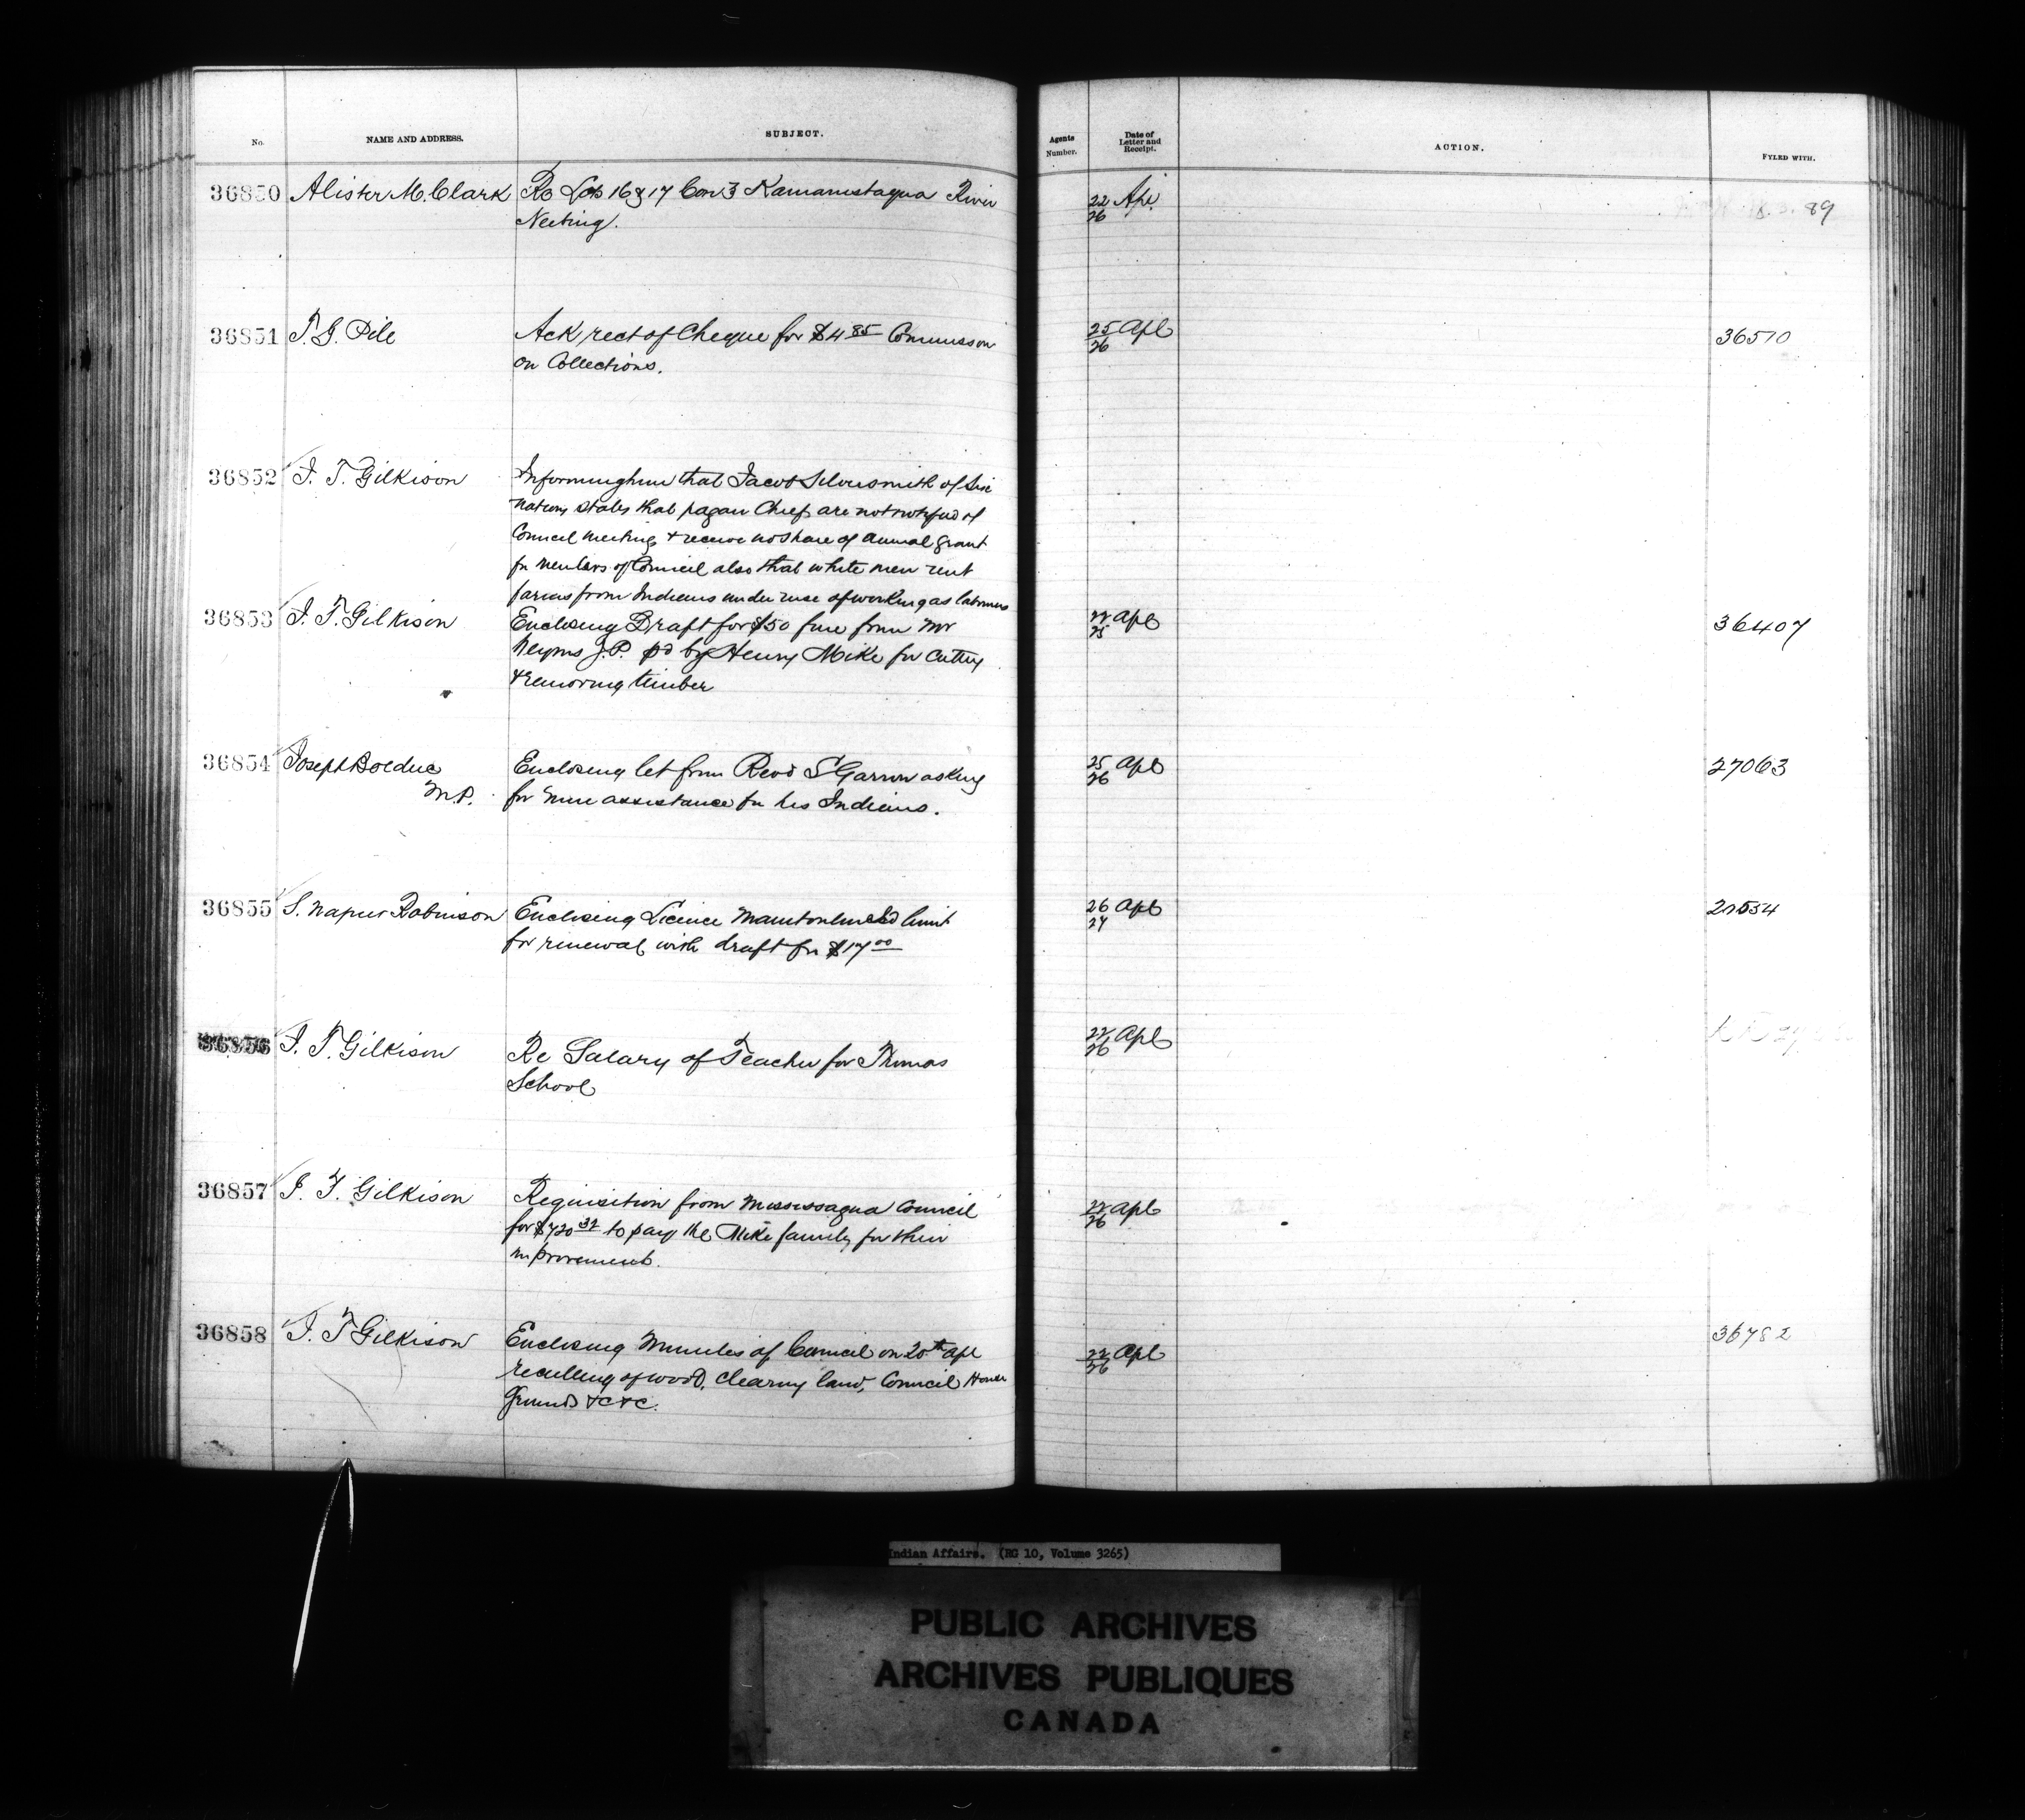 No. NAME AND ADDRESS. SUBJECT. Agents Number. Date of Letter and Receipt. ACTION. FYLED WITH.
36850 Alister M. Clark Re Lots 16 & 17 Con 3 Kamanistaqua River 22/26 Apl 89
Neebing.
36851 T. G. Pile Ack rect of Cheque for $4 85 Commission 25/26 Apl 36510
on Collections.
36852 J. T. Gilkison Informing him that Jacob Silversmith of Six
Nations states that pagan Chiefs are not notified of
Council meeting & receive no share of annual grant
for members of Council also that white men rent
farms from Indians under ruse of working as labourers
36853 J. T. Gilkison Enclosing Draft for $50 fine from Mr 22/25 Apl 36407
J.P. pd by Henry Mike for cutting
& removing timber
36854 Joseph Bolduc Enclosing let from Revd S Garron asking 25/26 Apl 27063
M.P. for more assistance for his Indians.
36855 S. Napier Robinson Enclosing Licence limit 26/27 Apl
for renewal with draft for $17 00
36856 J. T. Gilkison Re Salary of Teacher for Thomas 22/26 Apl
School
36857 J. T. Gilkison Requisition from Mississagua Council 22/26 Apl
for $720 32 to pay the Mike family for their
improvements.
36858 J. T Gilkison Enclosing Minutes of Council on 20th Apl 22/26 Apl 36782
of wood, clearing land, Council House
Grounds &c &c.
Indian Affairs. (RG 10, Volume 3265)
PUBLIC ARCHIVES
ARCHIVES PUBLIQUES
CANADA